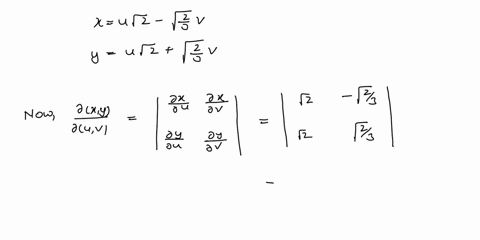 x = u√2 − √(2/3) v
y = u√2 + √(2/3) v
Now, ∂(x,y)/∂(u,v) = | ∂x/∂u ∂x/∂v ; ∂y/∂u ∂y/∂v | = | √2 −√(2/3) ; √2 √(2/3) |
=